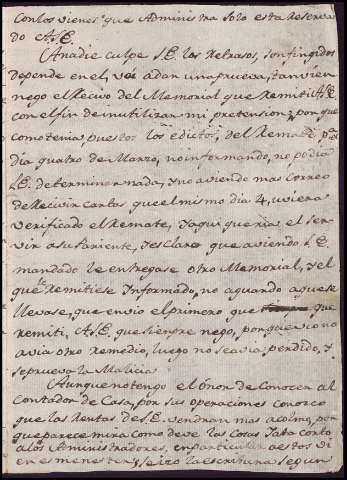 con los vienes que Administra solo esta reserva
do A S.E.
Anadie culpe S.E. los Retrasos, son fingidos
depende en el, voi a dar una prueva, tanvien
nego el Recivo del Memorial que Remiti A S.E.
con el fin de inutilizar mi pretension, por que
como tenia puestos los edictos, del Remate p.ª el
dia quatro de Marzo, no informando, no podia
S.E. determinar nada, y no aviendo mas correo
de Recivir cartas que el mismo dia 4, uviera
verificado el Remate, y aqui queria el ser-
vir a su Pariente, y es claro que aviendo S.E.
mandado le entregase otro Memorial, y el
que Remitiese Informado, no aguardo aque se
llevase, que envio el primero que que
Remiti, A S.E. que siempre nego, por que vio no
avia otro remedio, luego no se avia perdido, y
se prueva la Malicia
Aunque no tengo el onor de Conocer al
Contador de Casa, por sus operaciones conozco
que las Rentas de S.E. vendran mas a colmo, por
que parece mira como deve las cosas
a los Administradores, en particular a estos di
en es menester, se izo la escritura segun